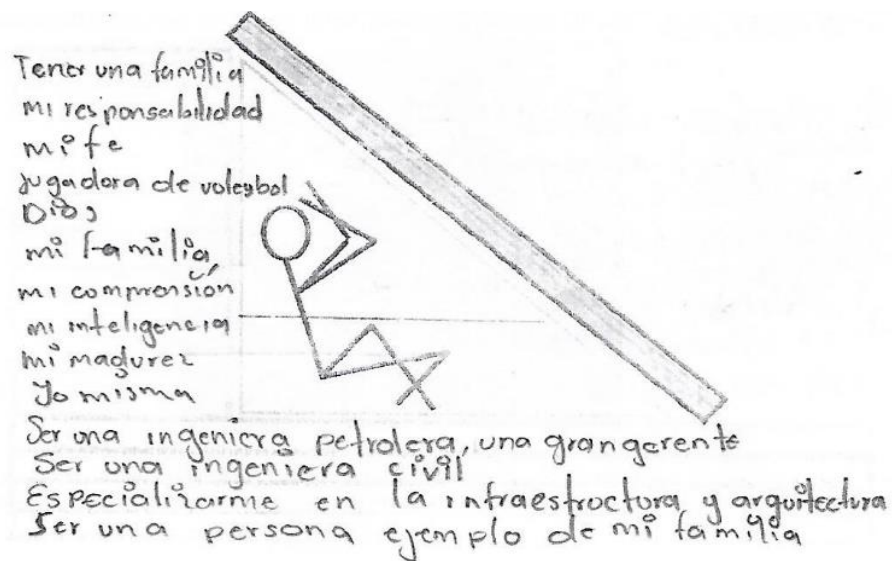 Tener una família
mi responsabilidad
mi fe
jugadora de voleybol
Dios
mi familia
mi comprensión
mi inteligencia
mi madurez
Yo misma
Ser una ingeniera petrolera, una gran gerente
Ser una ingeniera civil
Especializarme en la infraestructura y arquitectura
Ser una persona ejemplo de mi familia